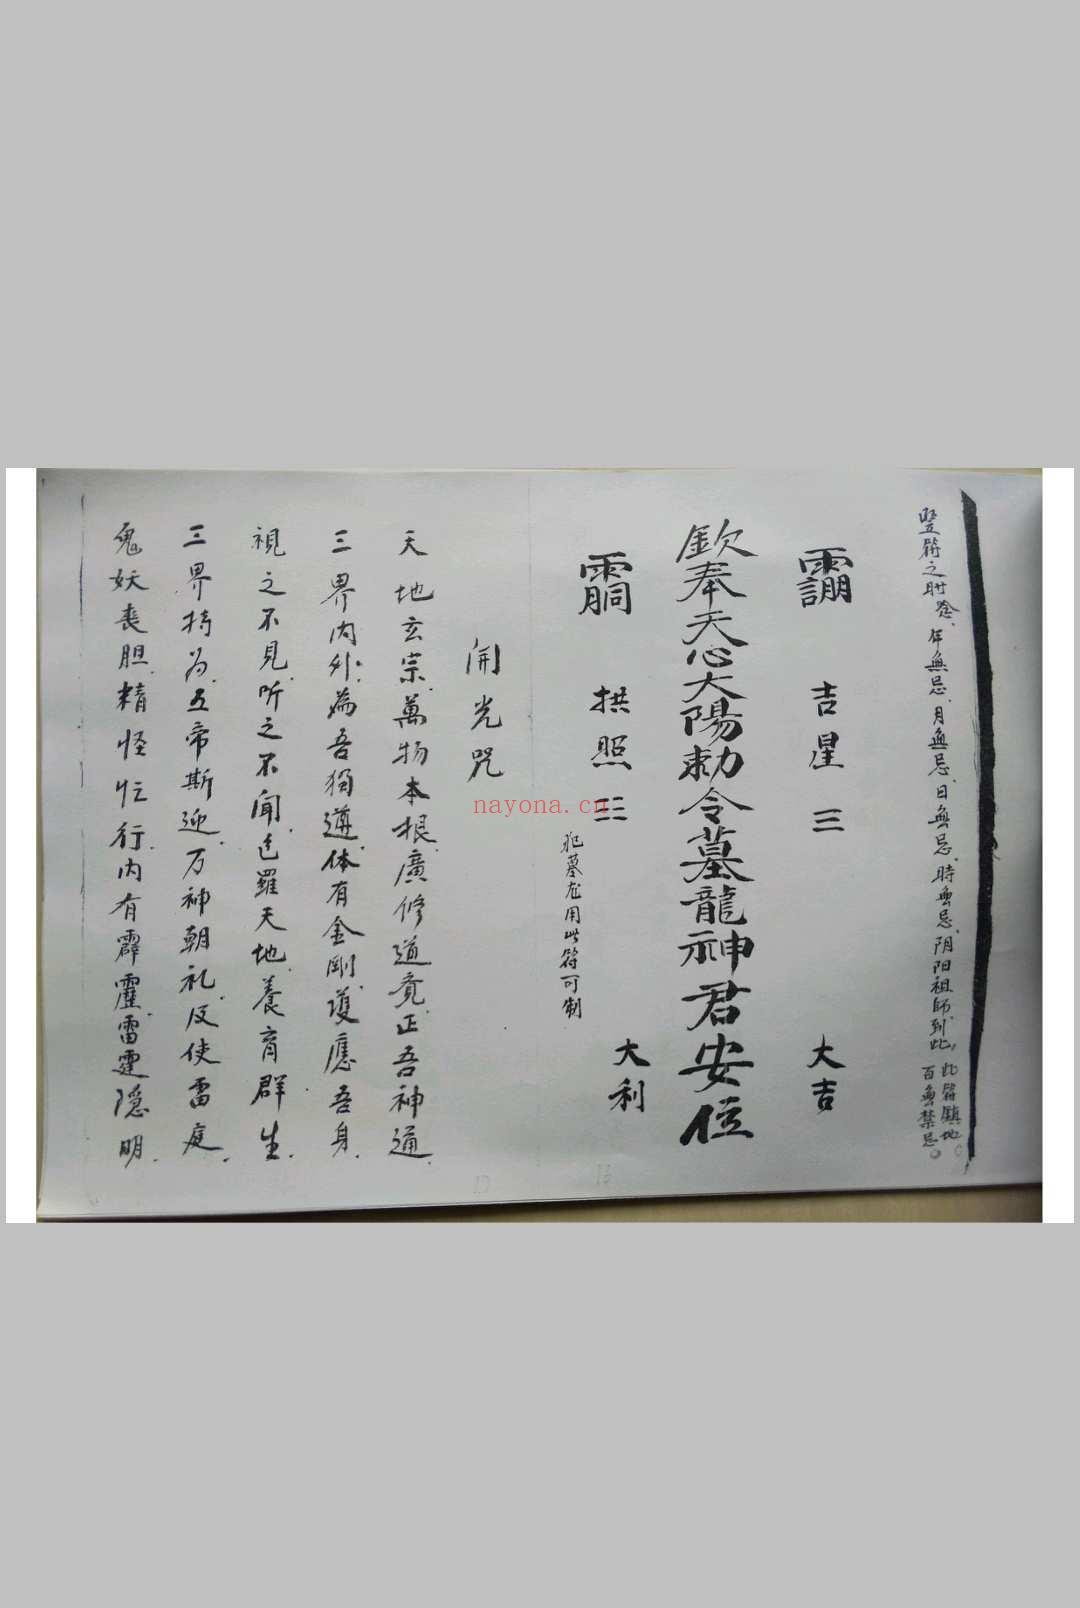 豎符之时念.年無忌.月無忌.日無忌.時無忌.阴阳祖師到此,此符鎮地
百無禁忌。
吉星三 大吉
欽奉天心太陽勅令墓龍神君安位
拱照三 大利
犯墓龙用此符可制
開光咒
天地玄宗.萬物本根.廣修道竟.正吾神通.
三界內外.為吾獨遵.体有金剛.護應吾身.
視之不見.听之不聞.包羅天地.養育群生.
三界持为.五帝斯迎.万神朝礼.役使雷庭.
鬼妖丧胆.精怪忙行.内有霹靂.雷霆隐明.
nayona.cn